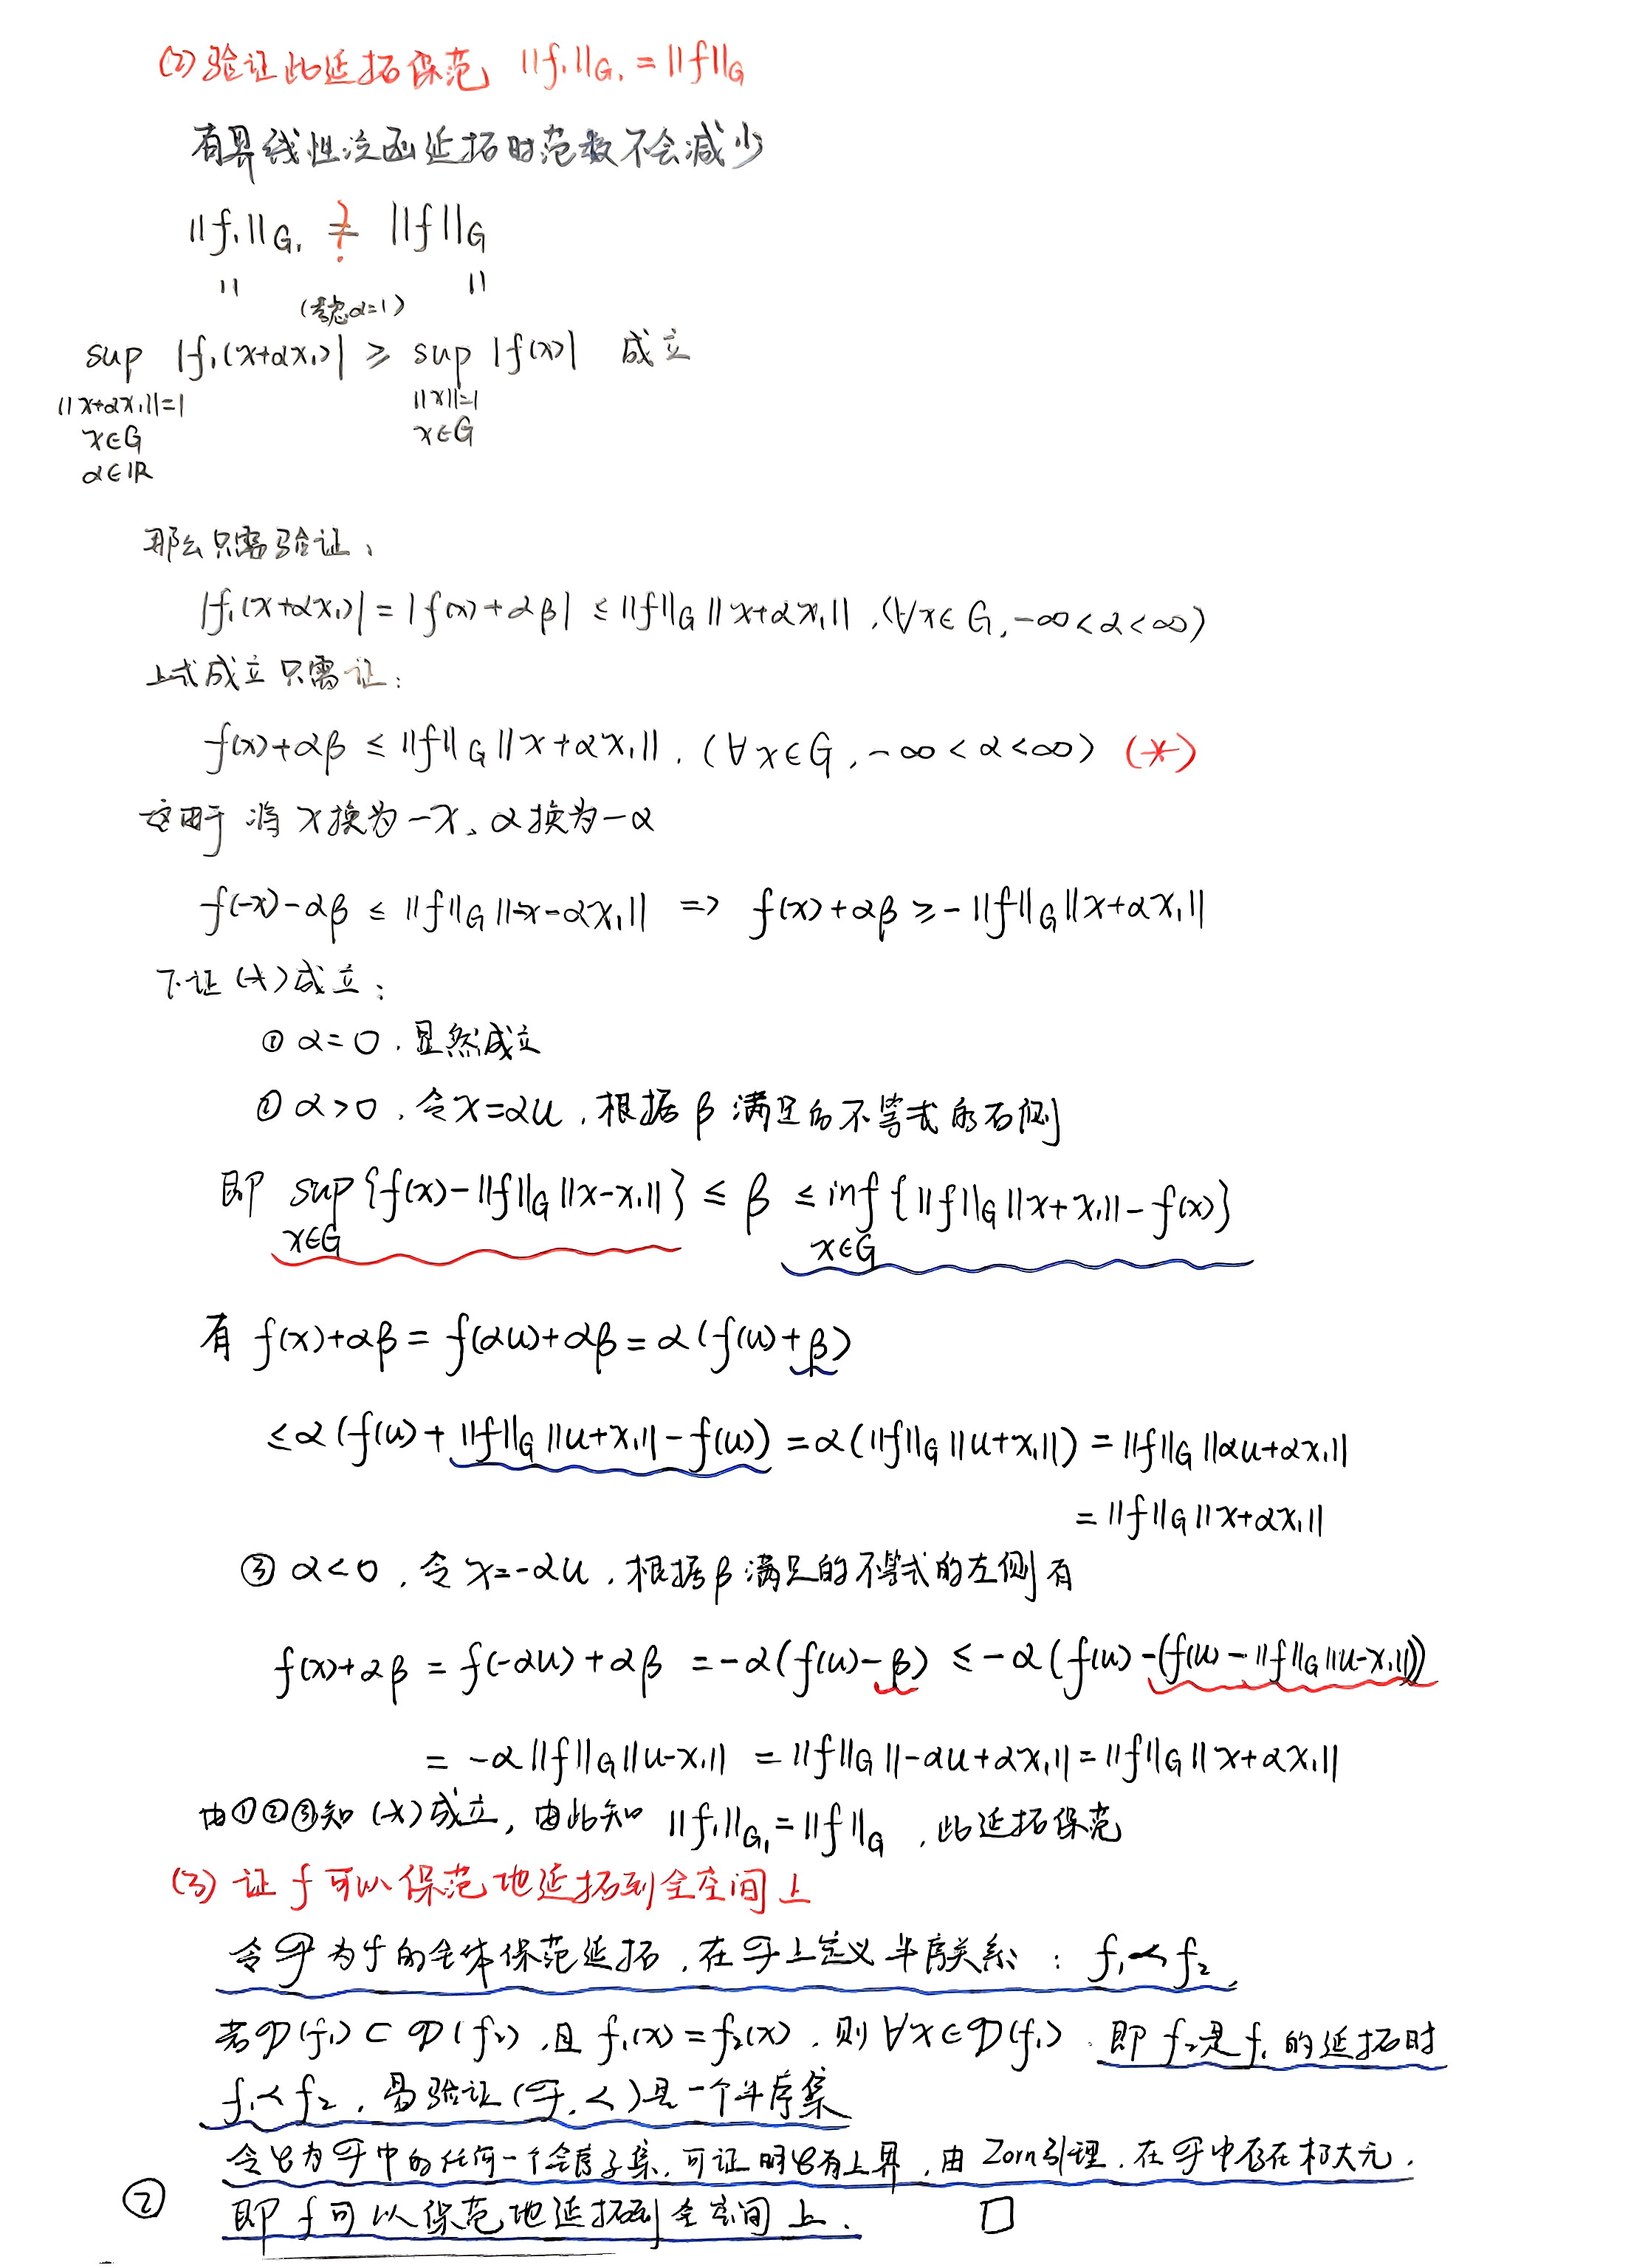 (2) 验证此延拓保范 ||f₁||_G₁ = ||f||_G
有界线性泛函延拓时范数不会减少
||f₁||_G₁ =? ||f||_G
|| (考虑α=1) ||
sup |f₁(x+αx₁)| ≥ sup |f(x)| 成立
||x+αx₁||=1 ||x||=1
x∈G x∈G
α∈ℝ
那么只需验证:
|f₁(x+αx₁)| = |f(x)+αβ| ≤ ||f||_G ||x+αx₁||, (∀x∈G, -∞<α<∞)
上式成立只需证:
f(x)+αβ ≤ ||f||_G ||x+αx₁||, (∀x∈G, -∞<α<∞) (*)
这由于将x换为-x、α换为-α
f(-x)-αβ ≤ ||f||_G ||-x-αx₁|| => f(x)+αβ ≥ -||f||_G ||x+αx₁||
下证(*)成立:
① α=0, 显然成立
② α>0, 令x=αu, 根据β满足的不等式的右侧
即 sup{f(x)-||f||_G ||x-x₁||} ≤ β ≤ inf{||f||_G ||x+x₁||-f(x)}
x∈G x∈G
有 f(x)+αβ = f(αu)+αβ = α(f(u)+β)
≤ α(f(u)+||f||_G ||u+x₁||-f(u)) = α(||f||_G ||u+x₁||) = ||f||_G ||αu+αx₁||
= ||f||_G ||x+αx₁||
③ α<0, 令x=-αu, 根据β满足的不等式的左侧有
f(x)+αβ = f(-αu)+αβ = -α(f(u)-β) ≤ -α(f(u)-(f(u)-||f||_G ||u-x₁||))
= -α||f||_G ||u-x₁|| = ||f||_G ||-αu+αx₁|| = ||f||_G ||x+αx₁||
由①②③知(*)成立, 由此知 ||f₁||_G₁ = ||f||_G, 此延拓保范
(3) 证f可以保范地延拓到全空间上
令𝓕为f的全体保范延拓, 在𝓕上定义半序关系: f₁≺f₂
若𝒟(f₁)⊂𝒟(f₂), 且f₁(x)=f₂(x), 则∀x∈𝒟(f₁). 即f₂是f₁的延拓时
f₁≺f₂, 易验证(𝓕,≺)是一个半序集
令𝒞为𝓕中的任何一个全序子集, 可证明𝒞有上界, 由Zorn引理, 在𝓕中存在极大元.
② 即f可以保范地延拓到全空间上. □